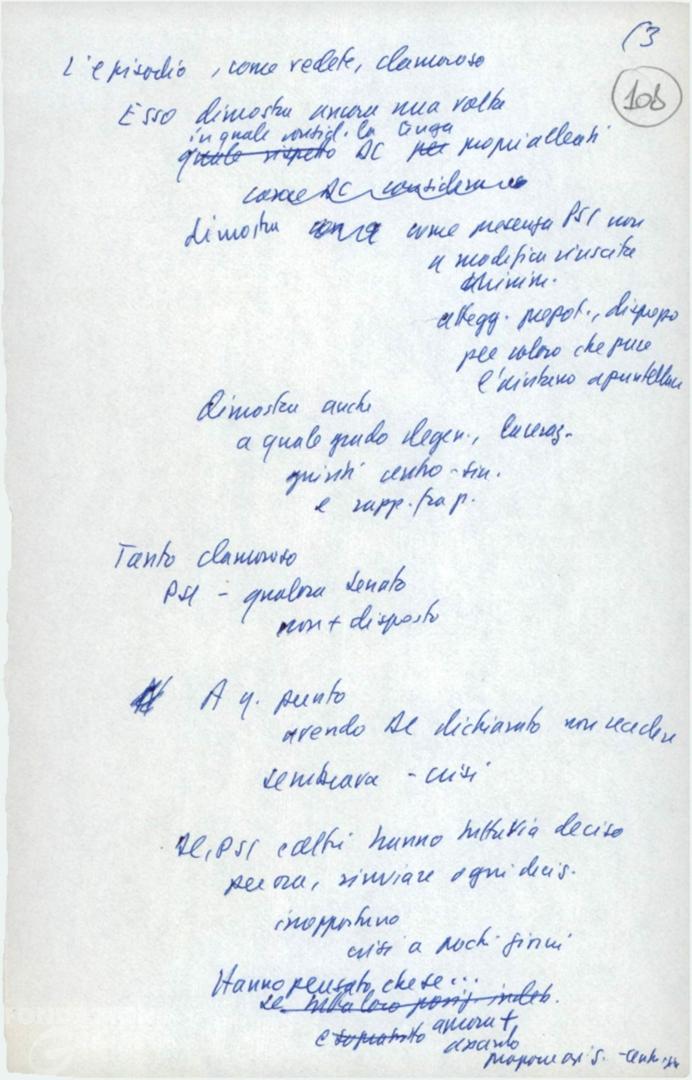 (3
106
L'episodio, come vedete, clamoroso
Esso dimostra ancora una volta
in quale consid. la
quale rispetto DC per propri alleati
come DC considera
dimostra come presenza PSI non
a modificare riuscita
minim.
attegg. prepot., disprezzo
per coloro che pure
l'aiutano a puntellare
Dimostra anche
a quale grado degen., laceraz.
giunti centro-sin.
e rapp. fra p.
Tanto clamoroso
PSI - qualora Senato
non + disposto
A q. punto
avendo DC dichiarato non recedere
sembrava - crisi
DC, PSI e altri hanno tuttavia deciso
per ora, rinviare ogni decis.
inopportuno
crisi a pochi giorni
Hanno pensato, che se...
se loro posiz. indeb.
e soprattutto ancora +
proporre